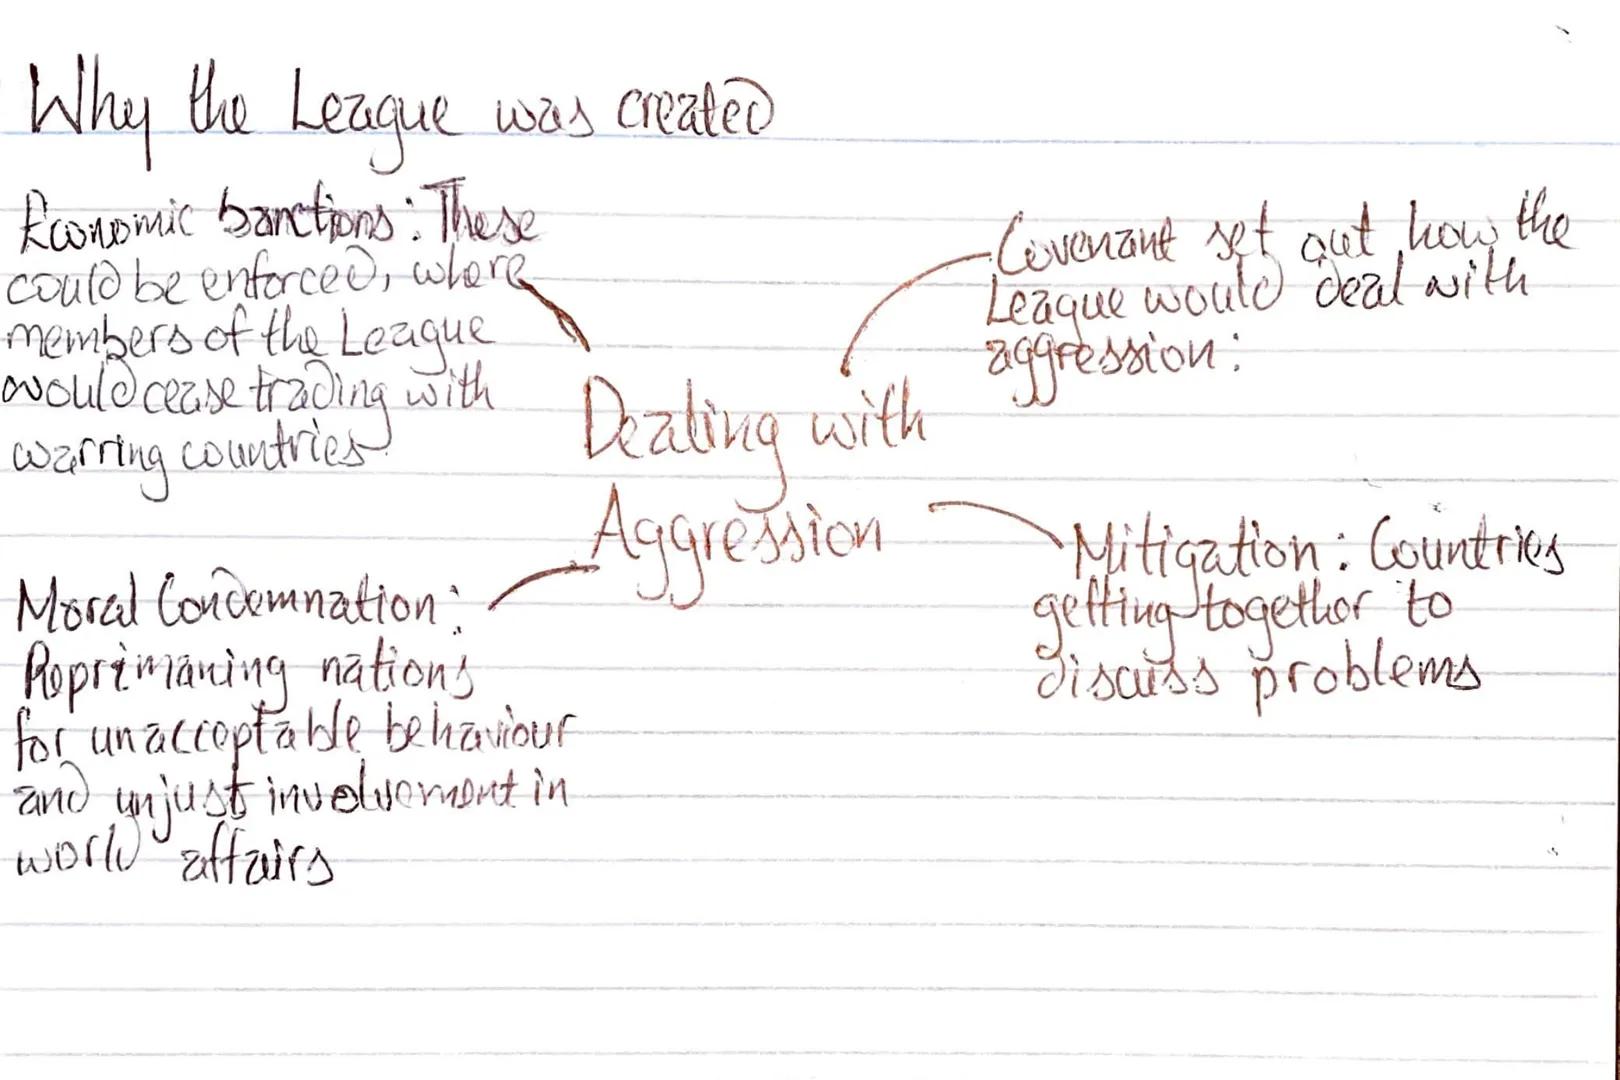 Why the League was created
Economic Sanctions: These
could be enforced, where
members of the League
would cease trading with
warring countries
Covenant set out how the
League would deal with
aggression:
Dealing with
Aggression
Mitigation: Countries
getting together to
discuss problems
Moral Condemnation:
Reprimaning nations
for unacceptable behaviour
and unjust involvement in
world affairs